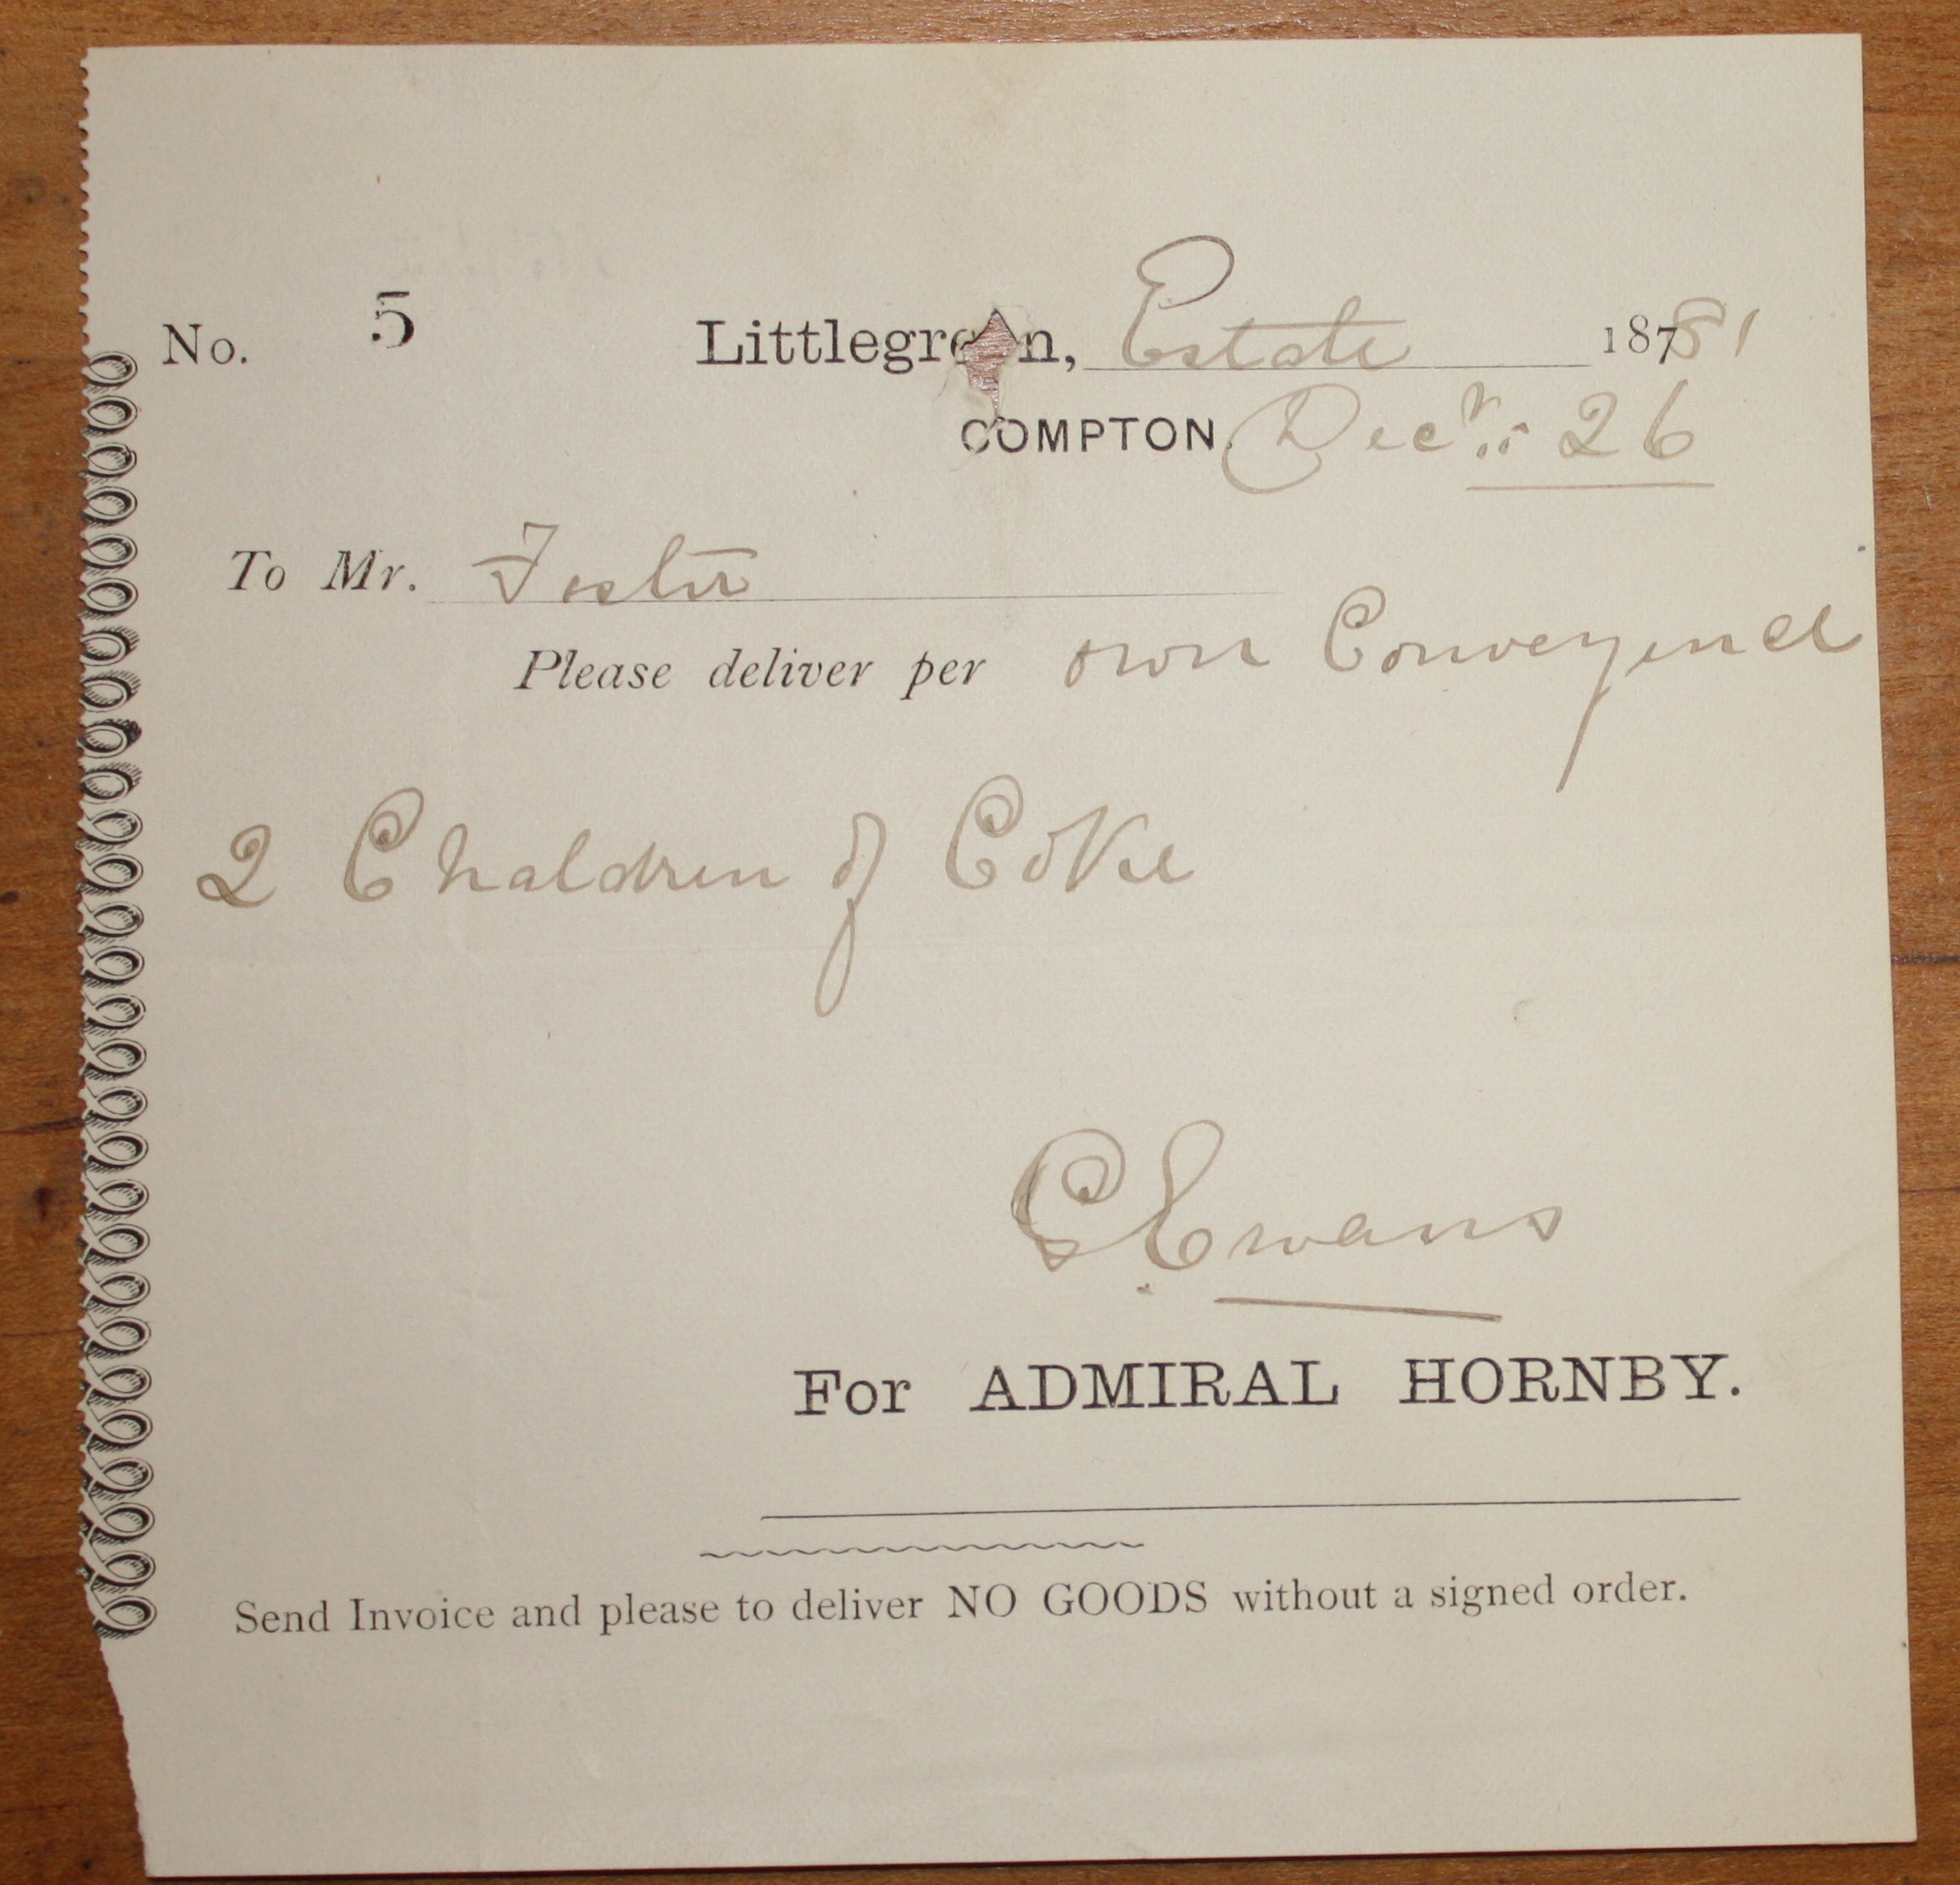 No. 5 Littlegreen, Estate 18781
COMPTON, Decr. 26
To Mr. Foster
Please deliver per own Conveyence
2 Chaldren of Coke
C Ewans
For ADMIRAL HORNBY.
Send Invoice and please to deliver NO GOODS without a signed order.